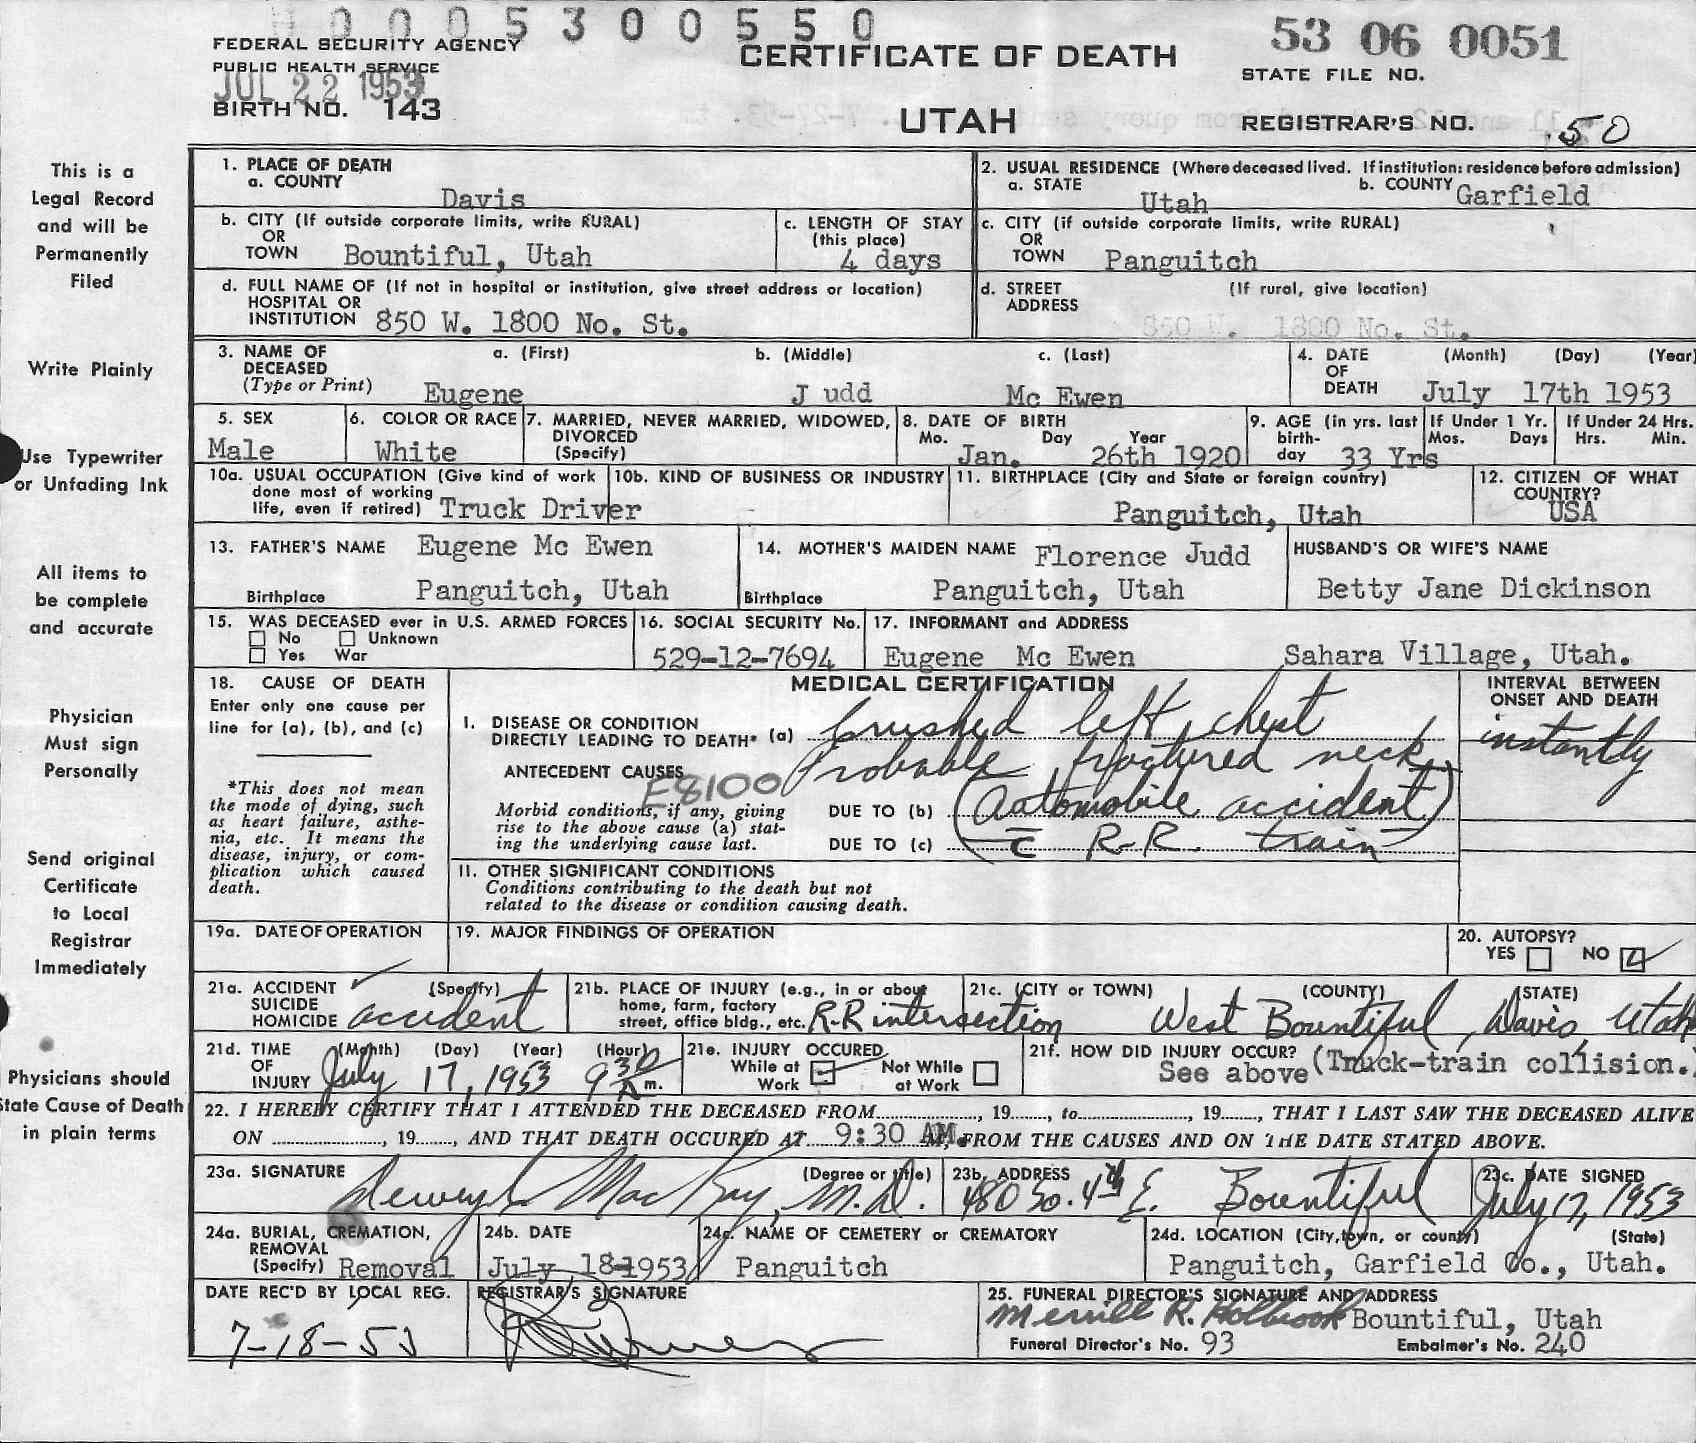 H 0 0 0 5 3 0 0 5 5 0
53 06 0051
FEDERAL SECURITY AGENCY
PUBLIC HEALTH SERVICE
JUL 22 1953
BIRTH NO. 143
CERTIFICATE OF DEATH
UTAH
STATE FILE NO.
REGISTRAR'S NO. 50
This is a
Legal Record
and will be
Permanently
Filed
Write Plainly
Use Typewriter
or Unfading Ink
All items to
be complete
and accurate
Physician
Must sign
Personally
Send original
Certificate
to Local
Registrar
Immediately
Physicians should
State Cause of Death
in plain terms
1. PLACE OF DEATH
a. COUNTY
Davis
2. USUAL RESIDENCE (Where deceased lived. If institution: residence before admission)
a. STATE Utah b. COUNTY Garfield
b. CITY (If outside corporate limits, write RURAL)
OR
TOWN Bountiful, Utah
c. LENGTH OF STAY
(this place)
4 days
c. CITY (if outside corporate limits, write RURAL)
OR
TOWN Panguitch
d. FULL NAME OF (If not in hospital or institution, give street address or location)
HOSPITAL OR
INSTITUTION 850 W. 1800 No. St.
d. STREET (If rural, give location)
ADDRESS
850 W. 1800 No. St.
3. NAME OF a. (First) b. (Middle) c. (Last)
DECEASED
(Type or Print) Eugene J udd Mc Ewen
4. DATE (Month) (Day) (Year)
OF
DEATH July 17th 1953
5. SEX
Male
6. COLOR OR RACE
White
7. MARRIED, NEVER MARRIED, WIDOWED,
DIVORCED
(Specify)
8. DATE OF BIRTH
Mo. Day Year
Jan. 26th 1920
9. AGE (in yrs. last
birth-
day 33 Yrs
If Under 1 Yr.
Mos. Days
If Under 24 Hrs.
Hrs. Min.
10a. USUAL OCCUPATION (Give kind of work
done most of working
life, even if retired) Truck Driver
10b. KIND OF BUSINESS OR INDUSTRY
11. BIRTHPLACE (City and State or foreign country)
Panguitch, Utah
12. CITIZEN OF WHAT
COUNTRY?
USA
13. FATHER'S NAME Eugene Mc Ewen
Birthplace Panguitch, Utah
14. MOTHER'S MAIDEN NAME Florence Judd
Birthplace Panguitch, Utah
HUSBAND'S OR WIFE'S NAME
Betty Jane Dickinson
15. WAS DECEASED ever in U.S. ARMED FORCES
No Unknown
Yes War
16. SOCIAL SECURITY No.
529-12-7694
17. INFORMANT and ADDRESS
Eugene Mc Ewen Sahara Village, Utah.
18. CAUSE OF DEATH
Enter only one cause per
line for (a), (b), and (c)
*This does not mean
the mode of dying, such
as heart failure, asthe-
nia, etc. It means the
disease, injury, or com-
plication which caused
death.
MEDICAL CERTIFICATION
I. DISEASE OR CONDITION
DIRECTLY LEADING TO DEATH* (a) Crushed left chest
Probable fractured neck
ANTECEDENT CAUSES
E8100
Morbid conditions, if any, giving
rise to the above cause (a) stat-
ing the underlying cause last.
DUE TO (b) (Automobile accident)
DUE TO (c) c̄ R.R. train
INTERVAL BETWEEN
ONSET AND DEATH
instantly
11. OTHER SIGNIFICANT CONDITIONS
Conditions contributing to the death but not
related to the disease or condition causing death.
19a. DATE OF OPERATION
19. MAJOR FINDINGS OF OPERATION
20. AUTOPSY?
YES NO
21a. ACCIDENT (Specify)
SUICIDE
HOMICIDE accident
21b. PLACE OF INJURY (e.g., in or about
home, farm, factory
street, office bldg., etc. R-R intersection
21c. (CITY or TOWN) (COUNTY) (STATE)
West Bountiful, Davis, Utah
21d. TIME (Month) (Day) (Year) (Hour)
OF
INJURY July 17, 1953 9 30 A m.
21e. INJURY OCCURED
While at Not While
Work at Work
21f. HOW DID INJURY OCCUR? (Truck-train collision.)
See above
22. I HEREBY CERTIFY THAT I ATTENDED THE DECEASED FROM............, 19......, to............, 19......, THAT I LAST SAW THE DECEASED ALIVE
ON ............, 19......, AND THAT DEATH OCCURED AT 9:30 AM., FROM THE CAUSES AND ON THE DATE STATED ABOVE.
23a. SIGNATURE (Degree or title)
Dewey C. MacKay, M.D.
23b. ADDRESS
480 So. 4th E. Bountiful
23c. DATE SIGNED
July 17, 1953
24a. BURIAL, CREMATION,
REMOVAL
(Specify) Removal
24b. DATE
July 18-1953
24c. NAME OF CEMETERY or CREMATORY
Panguitch
24d. LOCATION (City, town, or county) (State)
Panguitch, Garfield Co., Utah.
DATE REC'D BY LOCAL REG.
7-18-53
REGISTRAR'S SIGNATURE
25. FUNERAL DIRECTOR'S SIGNATURE AND ADDRESS
Merrill R. Holbrook Bountiful, Utah
Funeral Director's No. 93 Embalmer's No. 240